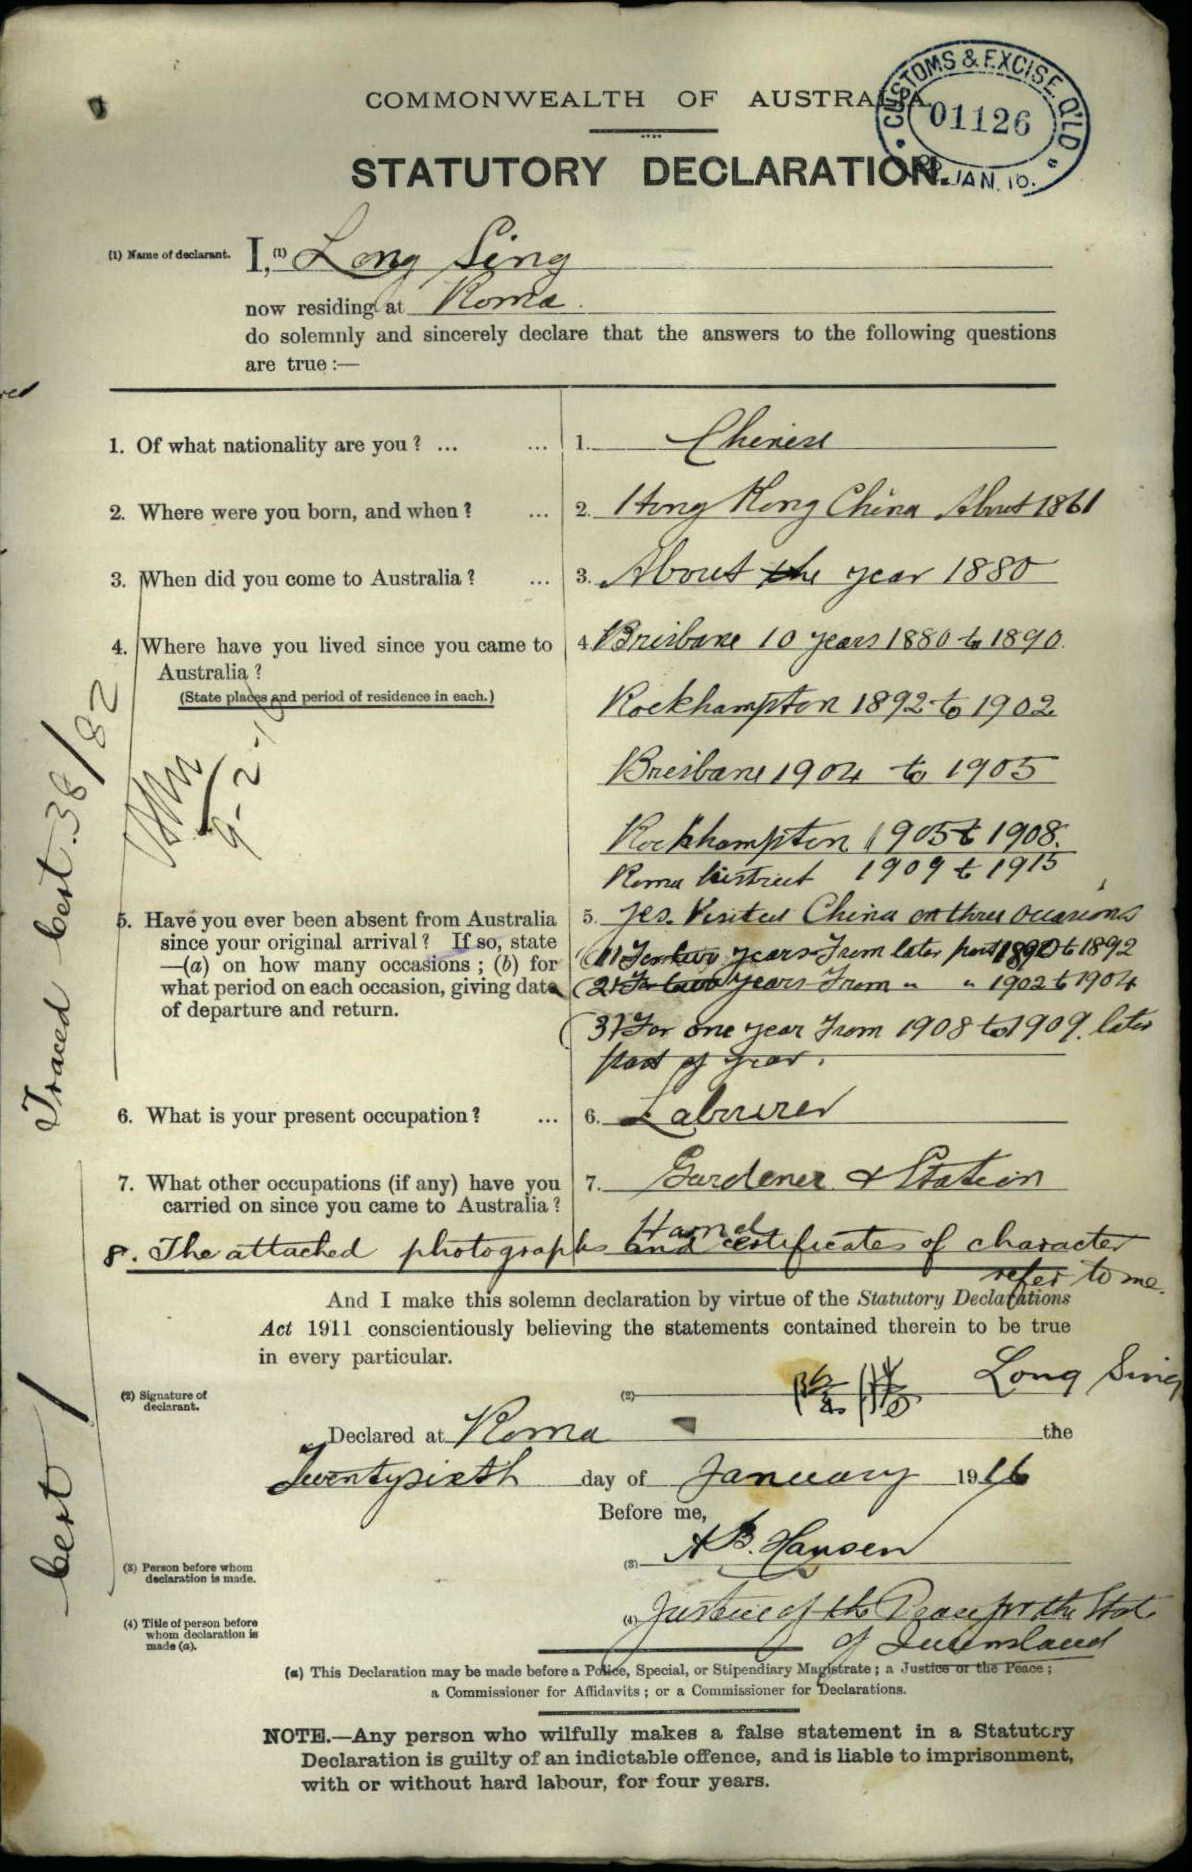 COMMONWEALTH OF AUSTRALIA
CUSTOMS & EXCISE Q'LD
01126
JAN. 16.
STATUTORY DECLARATION.
(1) Name of declarant. I, (1) Long Sing
now residing at Roma.
do solemnly and sincerely declare that the answers to the following questions
are true :—
1. Of what nationality are you ? ... ... 1. Chinese
2. Where were you born, and when ? ... 2. Hong Kong China About 1861
3. When did you come to Australia ? ... 3. About the year 1880
4. Where have you lived since you came to 4. Brisbane 10 years 1880 to 1890.
Australia ?
(State places and period of residence in each.)
Rockhampton 1892 to 1902
Brisbane 1904 to 1905
Rockhampton 1905 to 1908.
Roma District 1909 to 1915
5. Have you ever been absent from Australia 5. Yes. Visited China on three occasions
since your original arrival ? If so, state (1) For two years From later part 1890 to 1892
—(a) on how many occasions ; (b) for
what period on each occasion, giving date (2) For two years From " " 1902 to 1904
of departure and return.
(3) For one year From 1908 to 1909. later
part of year.
6. What is your present occupation ? ... 6. Labourer
7. What other occupations (if any) have you 7. Gardener & Station
carried on since you came to Australia ?
Hand
8. The attached photographs and certificates of character
refer to me.
And I make this solemn declaration by virtue of the Statutory Declarations
Act 1911 conscientiously believing the statements contained therein to be true
in every particular.
(2) Signature of
declarant.
(2) Long Sing
Declared at Roma the
Twentysixth day of January 1916
Before me,
(3) Person before whom
declaration is made.
(3) A B. Hansen
(4) Title of person before
whom declaration is
made (a).
(4) Justice of the Peace for the State
of Queensland
(a) This Declaration may be made before a Police, Special, or Stipendiary Magistrate ; a Justice of the Peace ;
a Commissioner for Affidavits ; or a Commissioner for Declarations.
NOTE.—Any person who wilfully makes a false statement in a Statutory
Declaration is guilty of an indictable offence, and is liable to imprisonment,
with or without hard labour, for four years.
Traced best. 38/82
9-2-